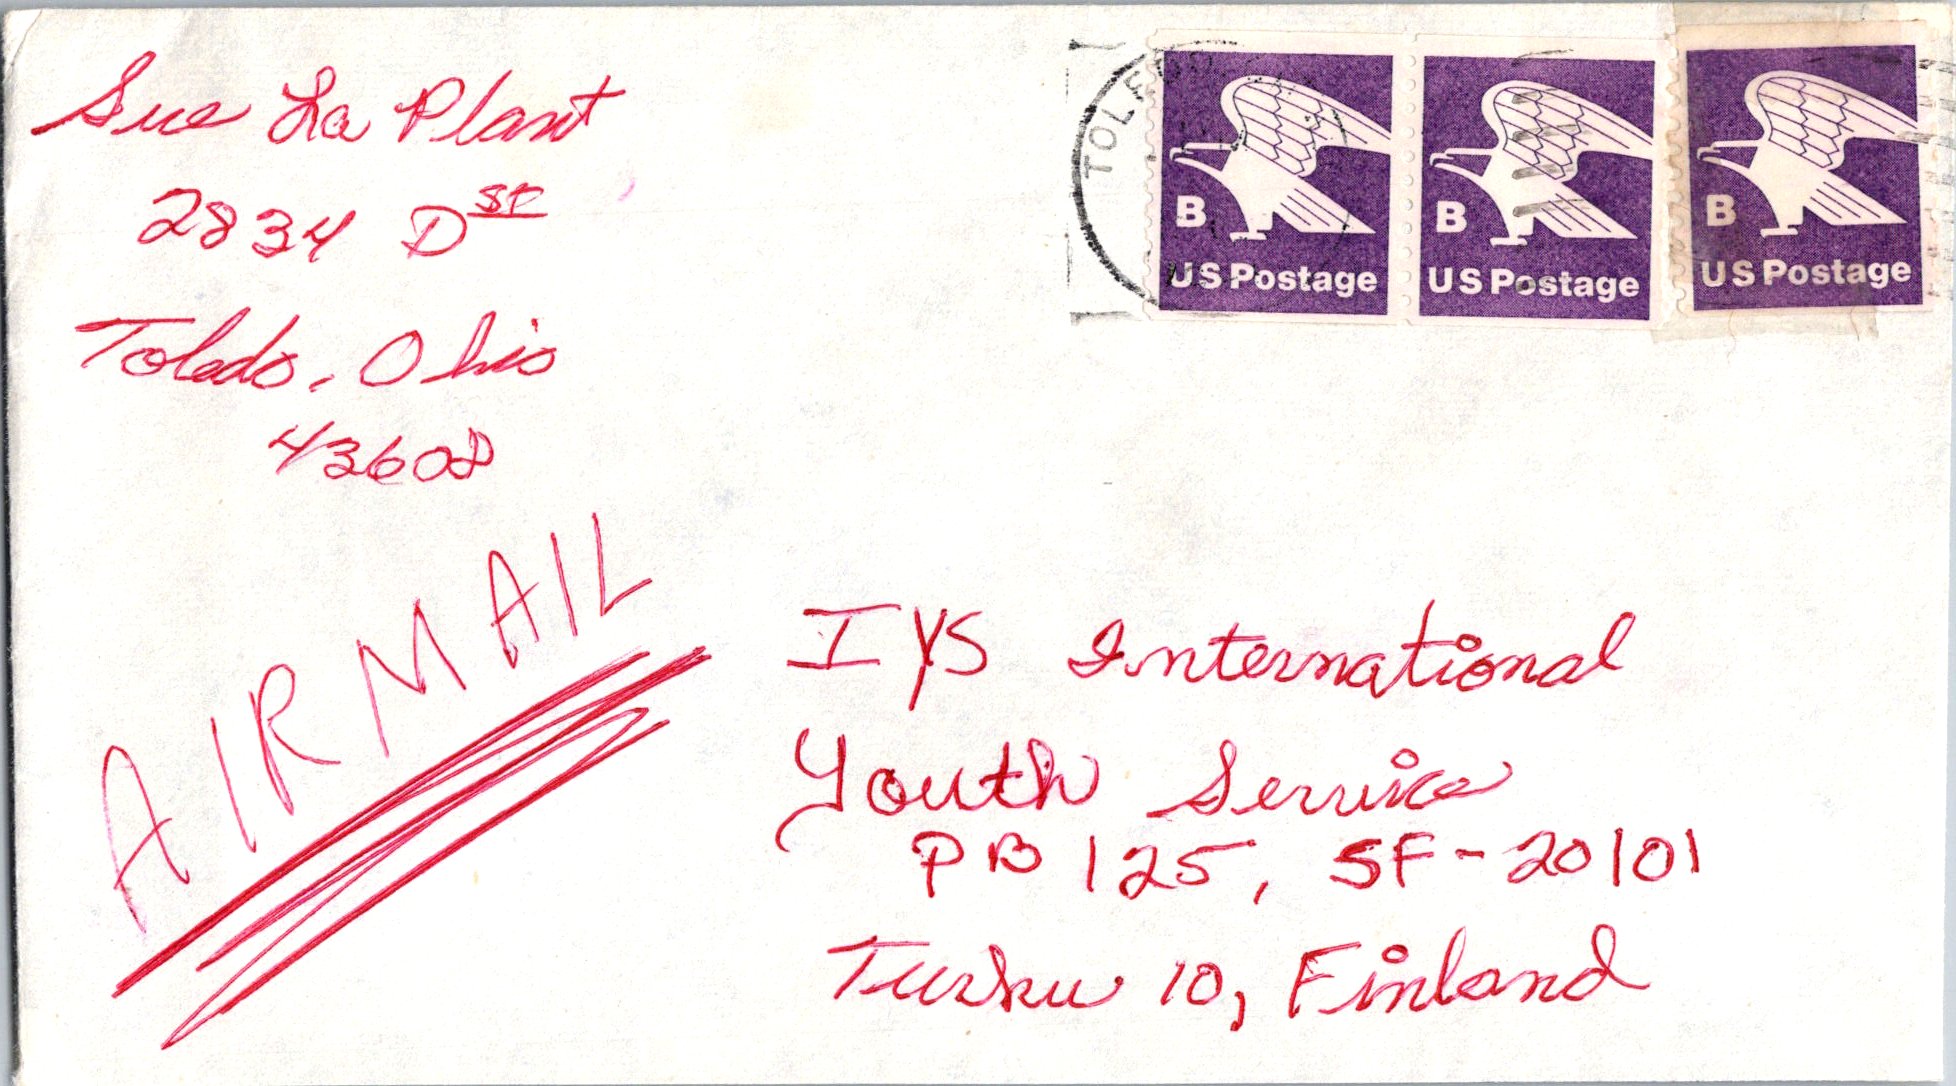 Sue La Plant
2834 D St
Toledo, Ohio
43608
AIRMAIL
TOLEDO
B
US Postage
B
US Postage
B
US Postage
IYS International
Youth Service
PB 125, SF-20101
Turku 10, Finland